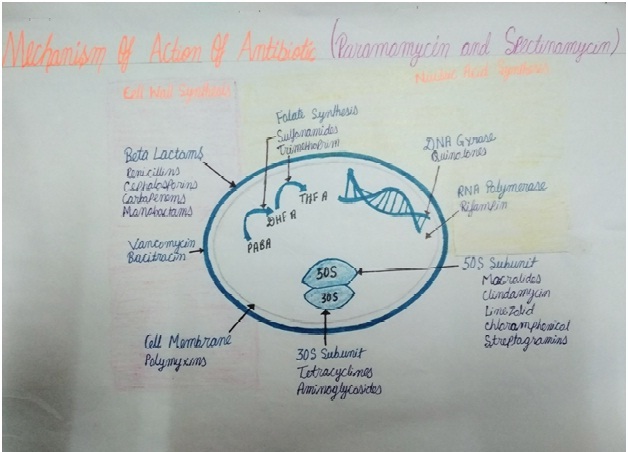 Mechanism Of Action Of Antibiotic (Paramomycin and Spectinamycin)
Cell Wall Synthesis
Nucleic Acid Synthesis
Folate Synthesis
Sulfonamides
Trimethoprim
Beta Lactams
Penicillins
Cephalosporins
Carbapenems
Monobactams
DNA Gyrase
Quinolones
THFA
DHFA
PABA
RNA Polymerase
Rifampin
Vancomycin
Bacitracin
50S Subunit
Macralides
Clindamycin
Linezolid
Chloramphenical
Streptagramins
50S
30S
Cell Membrane
Polymyxins
30S Subunit
Tetracyclines
Aminoglycosides